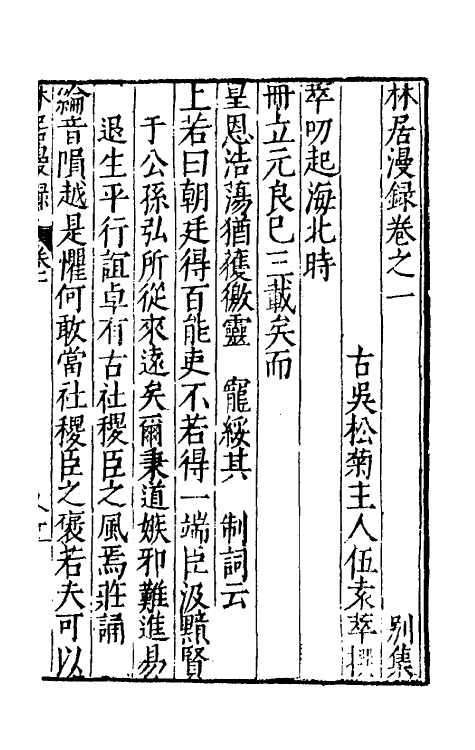 林居漫録卷之一 别集
古吳松菊主人伍袁萃撰
萃叨起海北時
冊立元良已三載矣而
皇恩浩蕩猶獲徼靈 寵綏其 制詞云
上若曰朝廷得百能吏不若得一端臣汲黯賢
于公孫弘所從來遠矣爾秉道嫉邪難進易
退生平行誼卓有古社稷臣之風焉莊誦
綸音隕越是懼何敢當社稷臣之褒若夫可以
林居漫録 卷一